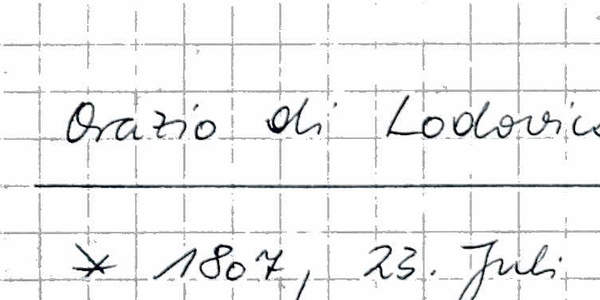 Orazio di Lodovico
* 1807, 23. Juli